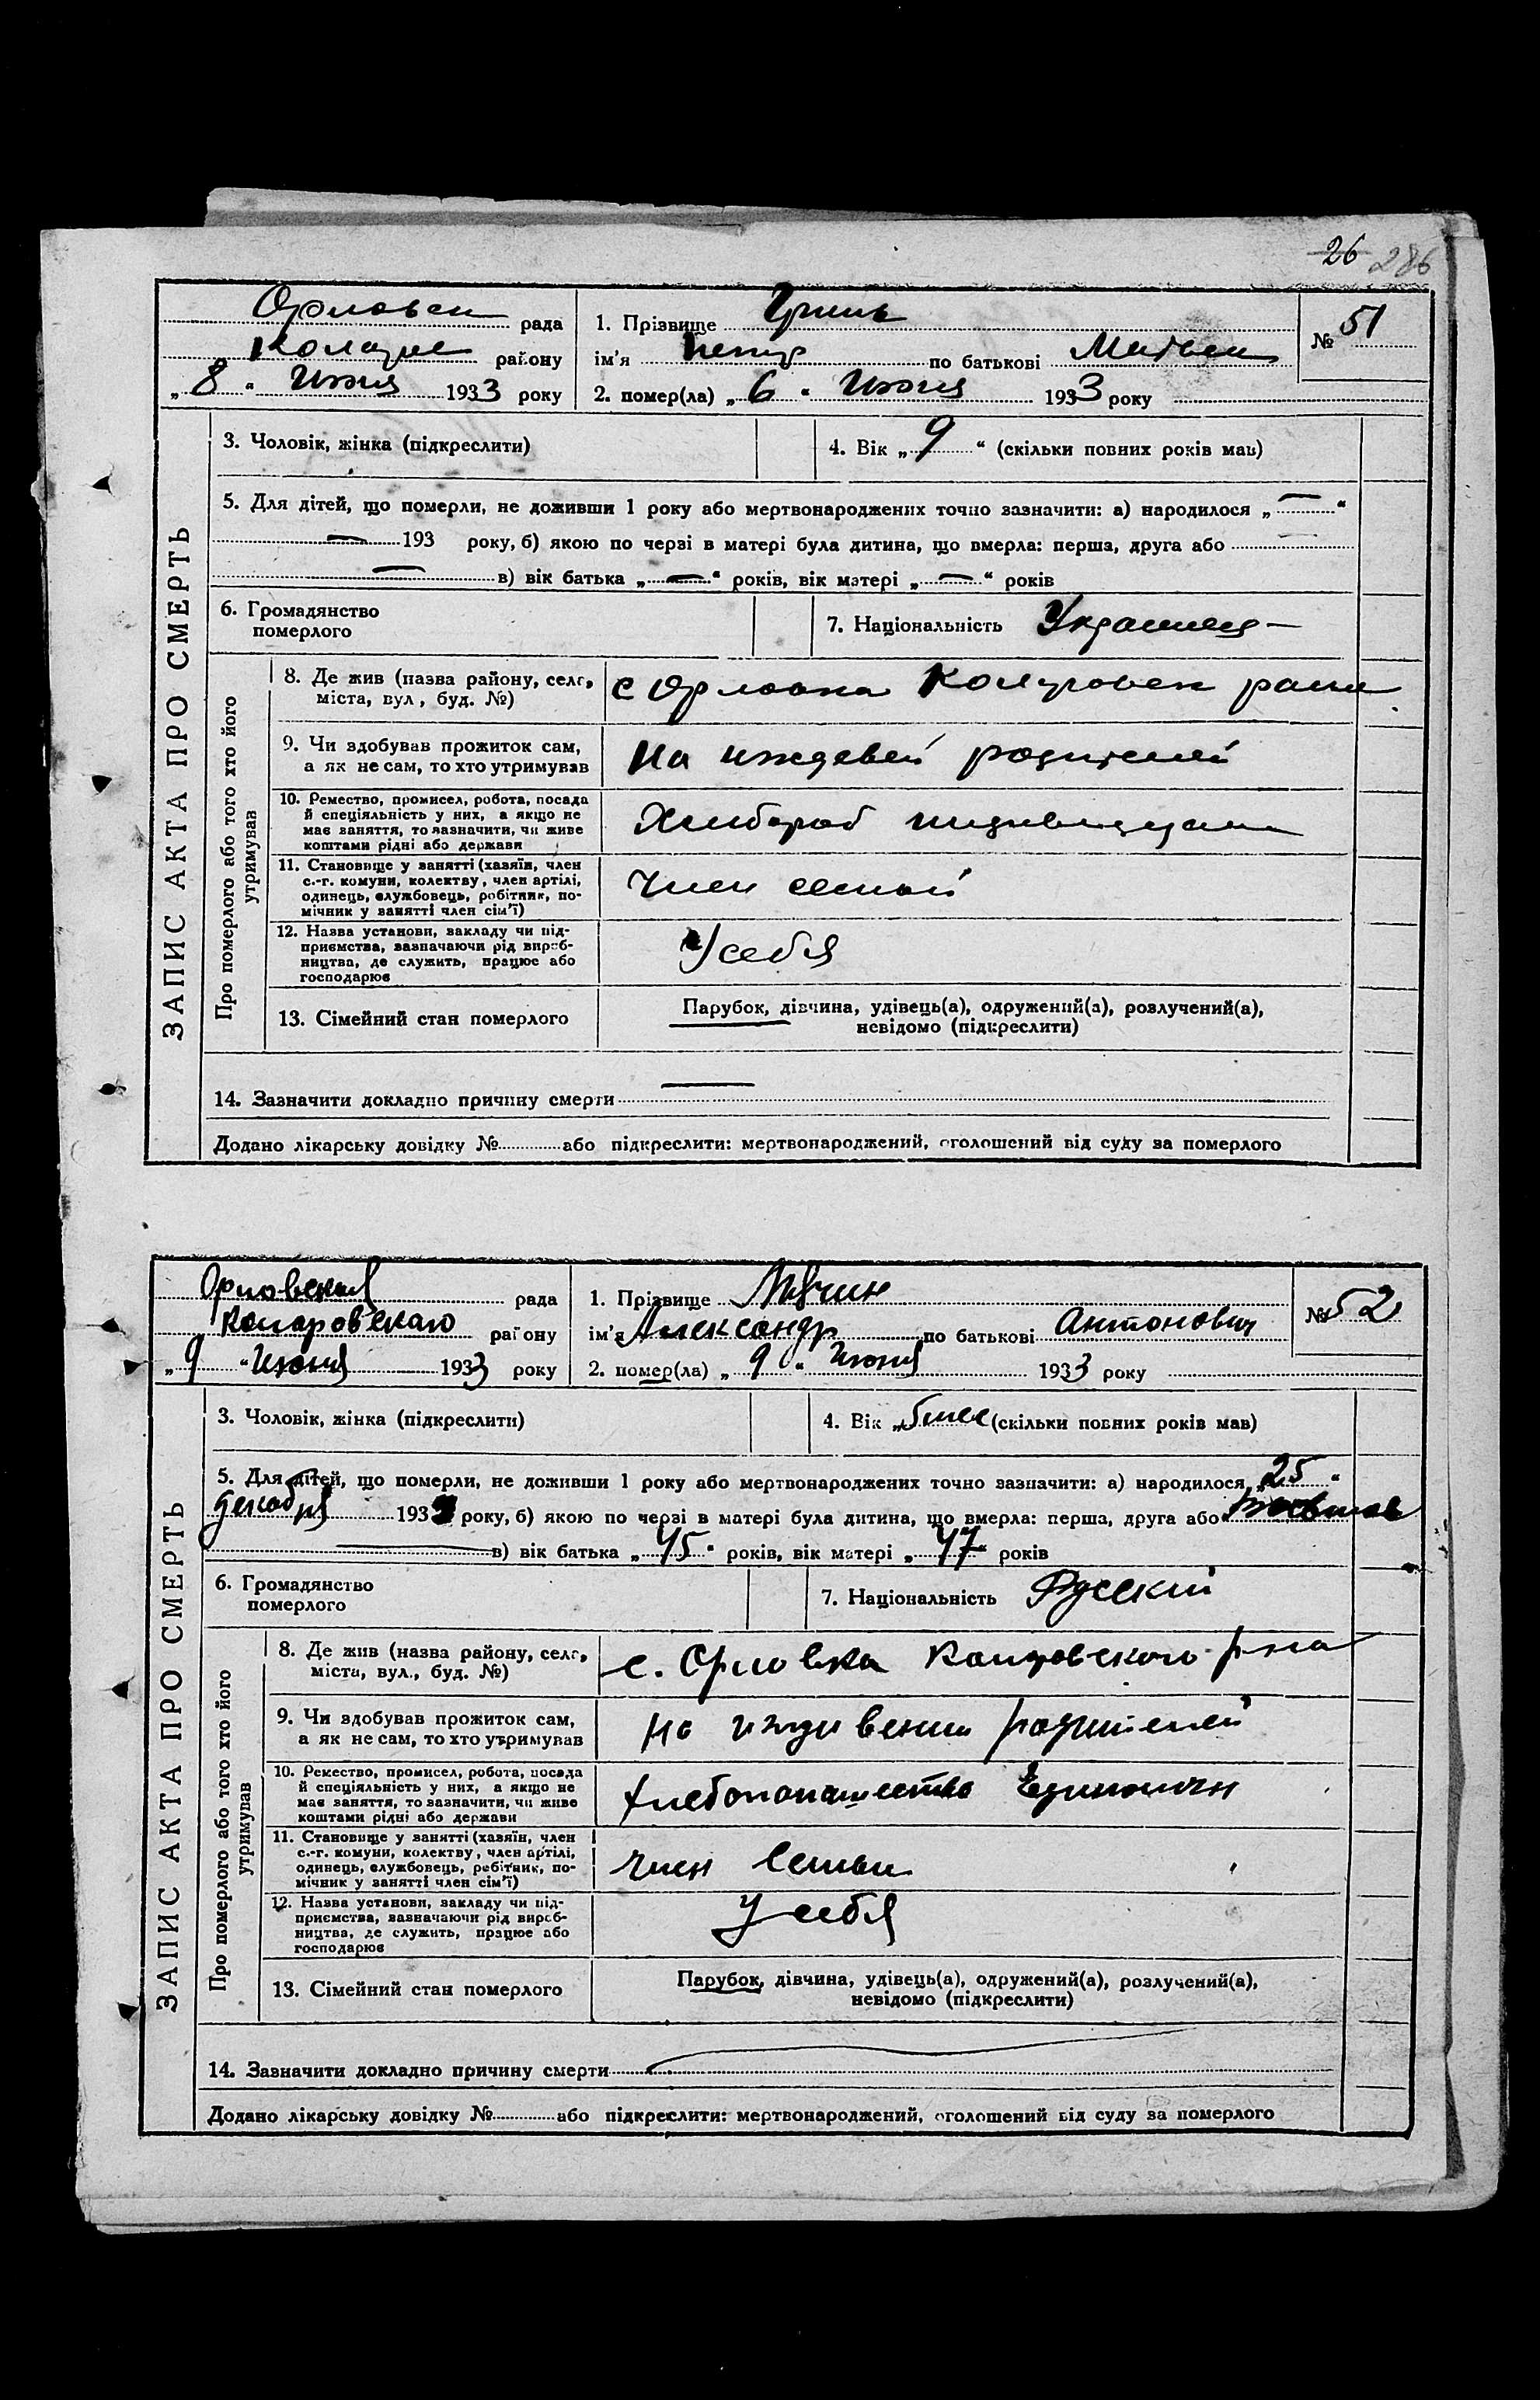 26 286
Орловск рада
1. Прізвище Гринь
№ 51
району
ім'я Петр по батькові Матвеи
„ 8 “ Июня 1933 року
2. помер(ла) „ 6 “ Июня 1933 року
ЗАПИС АКТА ПРО СМЕРТЬ
3. Чоловік, жінка (підкреслити)
4. Вік „ 9 “ (скільки повних років мав)
5. Для дітей, що померли, не доживши 1 року або мертвонароджених точно зазначити: а) народилося „ — “
— 193 року, б) якою по черзі в матері була дитина, що вмерла: перша, друга або —
— в) вік батька „ — “ років, вік матері „ — “ років
6. Громадянство
померлого
7. Національність Украинец
Про померлого або того хто його
утримував
8. Де жив (назва району, село,
міста, вул, буд. №)
с Орловка раена
9. Чи здобував прожиток сам,
а як не сам, то хто утримував
На иждевен родителей
10. Ремество, промисел, робота, посада
й спеціяльність у них, а якщо не
має заняття, то зазначити, чи живе
коштами рідні або держави
Хлибороб
11. Становище у занятті (хазяїн, член
с.-г. комуни, колективу, член артілі,
одинець, службовець, робітник, по-
мічник у занятті член сім'ї)
Член семьи
12. Назва установи, закладу чи під-
приємства, зазначаючи рід вироб-
ництва, де служить, працює або
господарює
У себя
13. Сімейний стан померлого
Парубок, дівчина, удівець(а), одружений(а), розлучений(а),
невідомо (підкреслити)
14. Зазначити докладно причину смерти —
Додано лікарську довідку № або підкреслити: мертвонароджений, оголошений від суду за померлого
Орловская рада
1. Прізвище
№ 52
району
ім'я Александр по батькові Антонович
„ 9 “ Июня 1933 року
2. помер(ла) „ 9 “ Июня 1933 року
ЗАПИС АКТА ПРО СМЕРТЬ
3. Чоловік, жінка (підкреслити)
4. Вік „ 5 мес (скільки повних років мав)
5. Для дітей, що померли, не доживши 1 року або мертвонароджених точно зазначити: а) народилося „ 25 “
декабря 193 року, б) якою по черзі в матері була дитина, що вмерла: перша, друга або
— в) вік батька „ 45 “ років, вік матері „ 47 “ років
6. Громадянство
померлого
7. Національність Русский
Про померлого або того хто його
утримував
8. Де жив (назва району, село,
міста, вул., буд. №)
с. Орловка р-на
9. Чи здобував прожиток сам,
а як не сам, то хто утримував
на иждивении родителей
10. Ремество, промисел, робота, посада
й спеціяльність у них, а якщо не
має заняття, то зазначити, чи живе
коштами рідні або держави
Хлебопашество Единоличн
11. Становище у занятті (хазяїн, член
с.-г. комуни, колективу, член артілі,
одинець, службовець, робітник, по-
мічник у занятті член сім'ї)
член Семьи
12. Назва установи, закладу чи під-
приємства, зазначаючи рід вироб-
ництва, де служить, працює або
господарює
У себя
13. Сімейний стан померлого
Парубок, дівчина, удівець(а), одружений(а), розлучений(а),
невідомо (підкреслити)
14. Зазначити докладно причину смерти
Додано лікарську довідку № або підкреслити: мертвонароджений, оголошений від суду за померлого